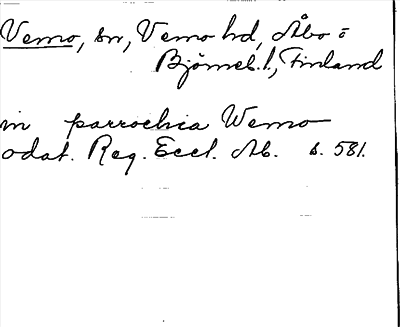 Vemo, sn, Vemo hd, Åbo o
Björneb. l, Finland
in parrochia Wemo
odat. Reg. Eccl. Ab. s. 581.